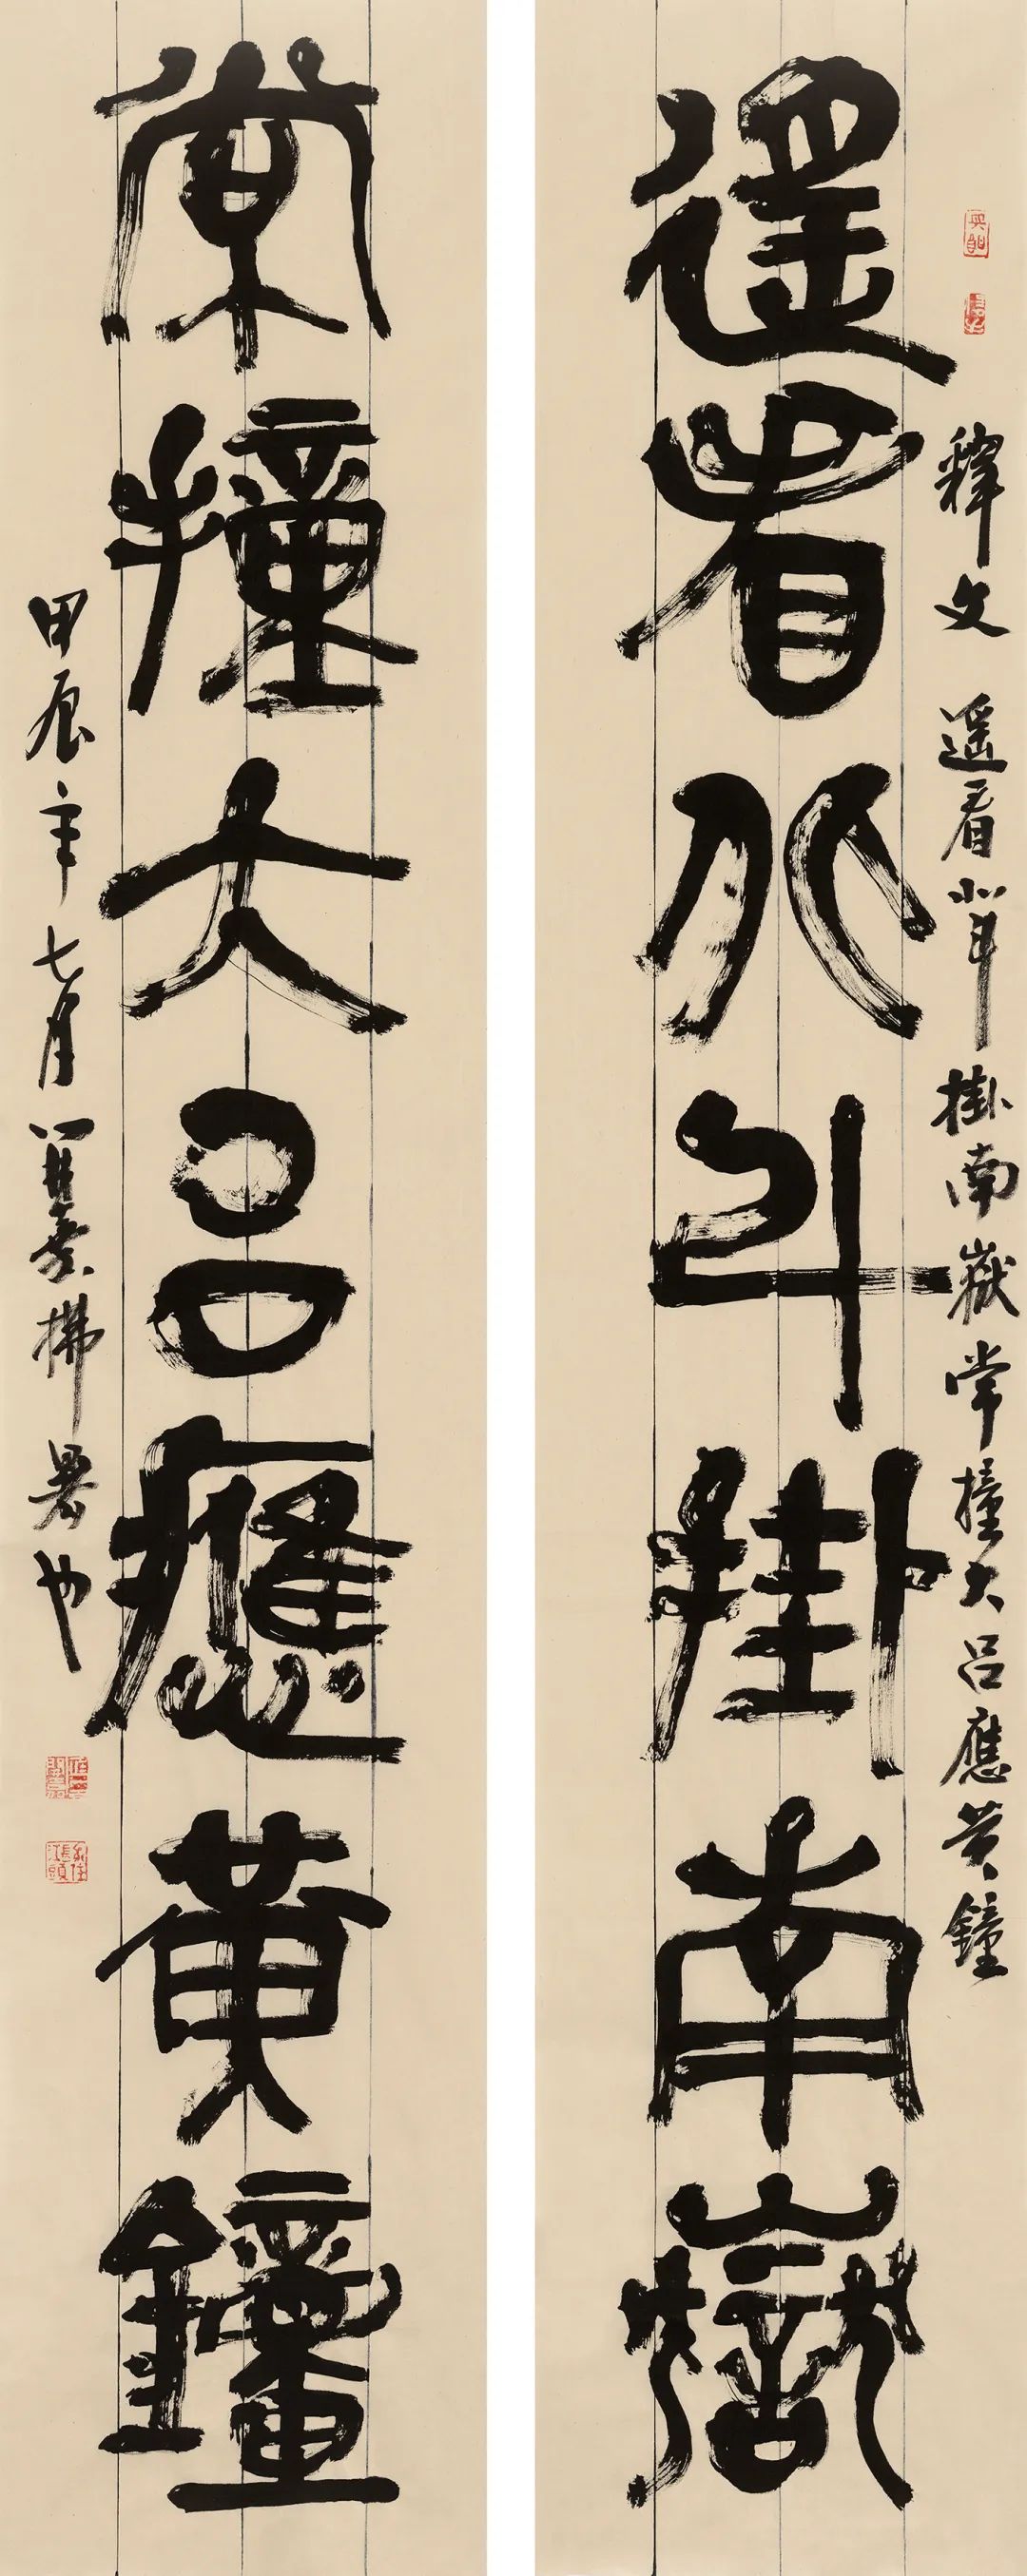 遥看北斗掛南嶽
釋文 遥看北斗掛南嶽常撞大呂應黄鐘
常撞大呂應黄鐘
甲辰年七月